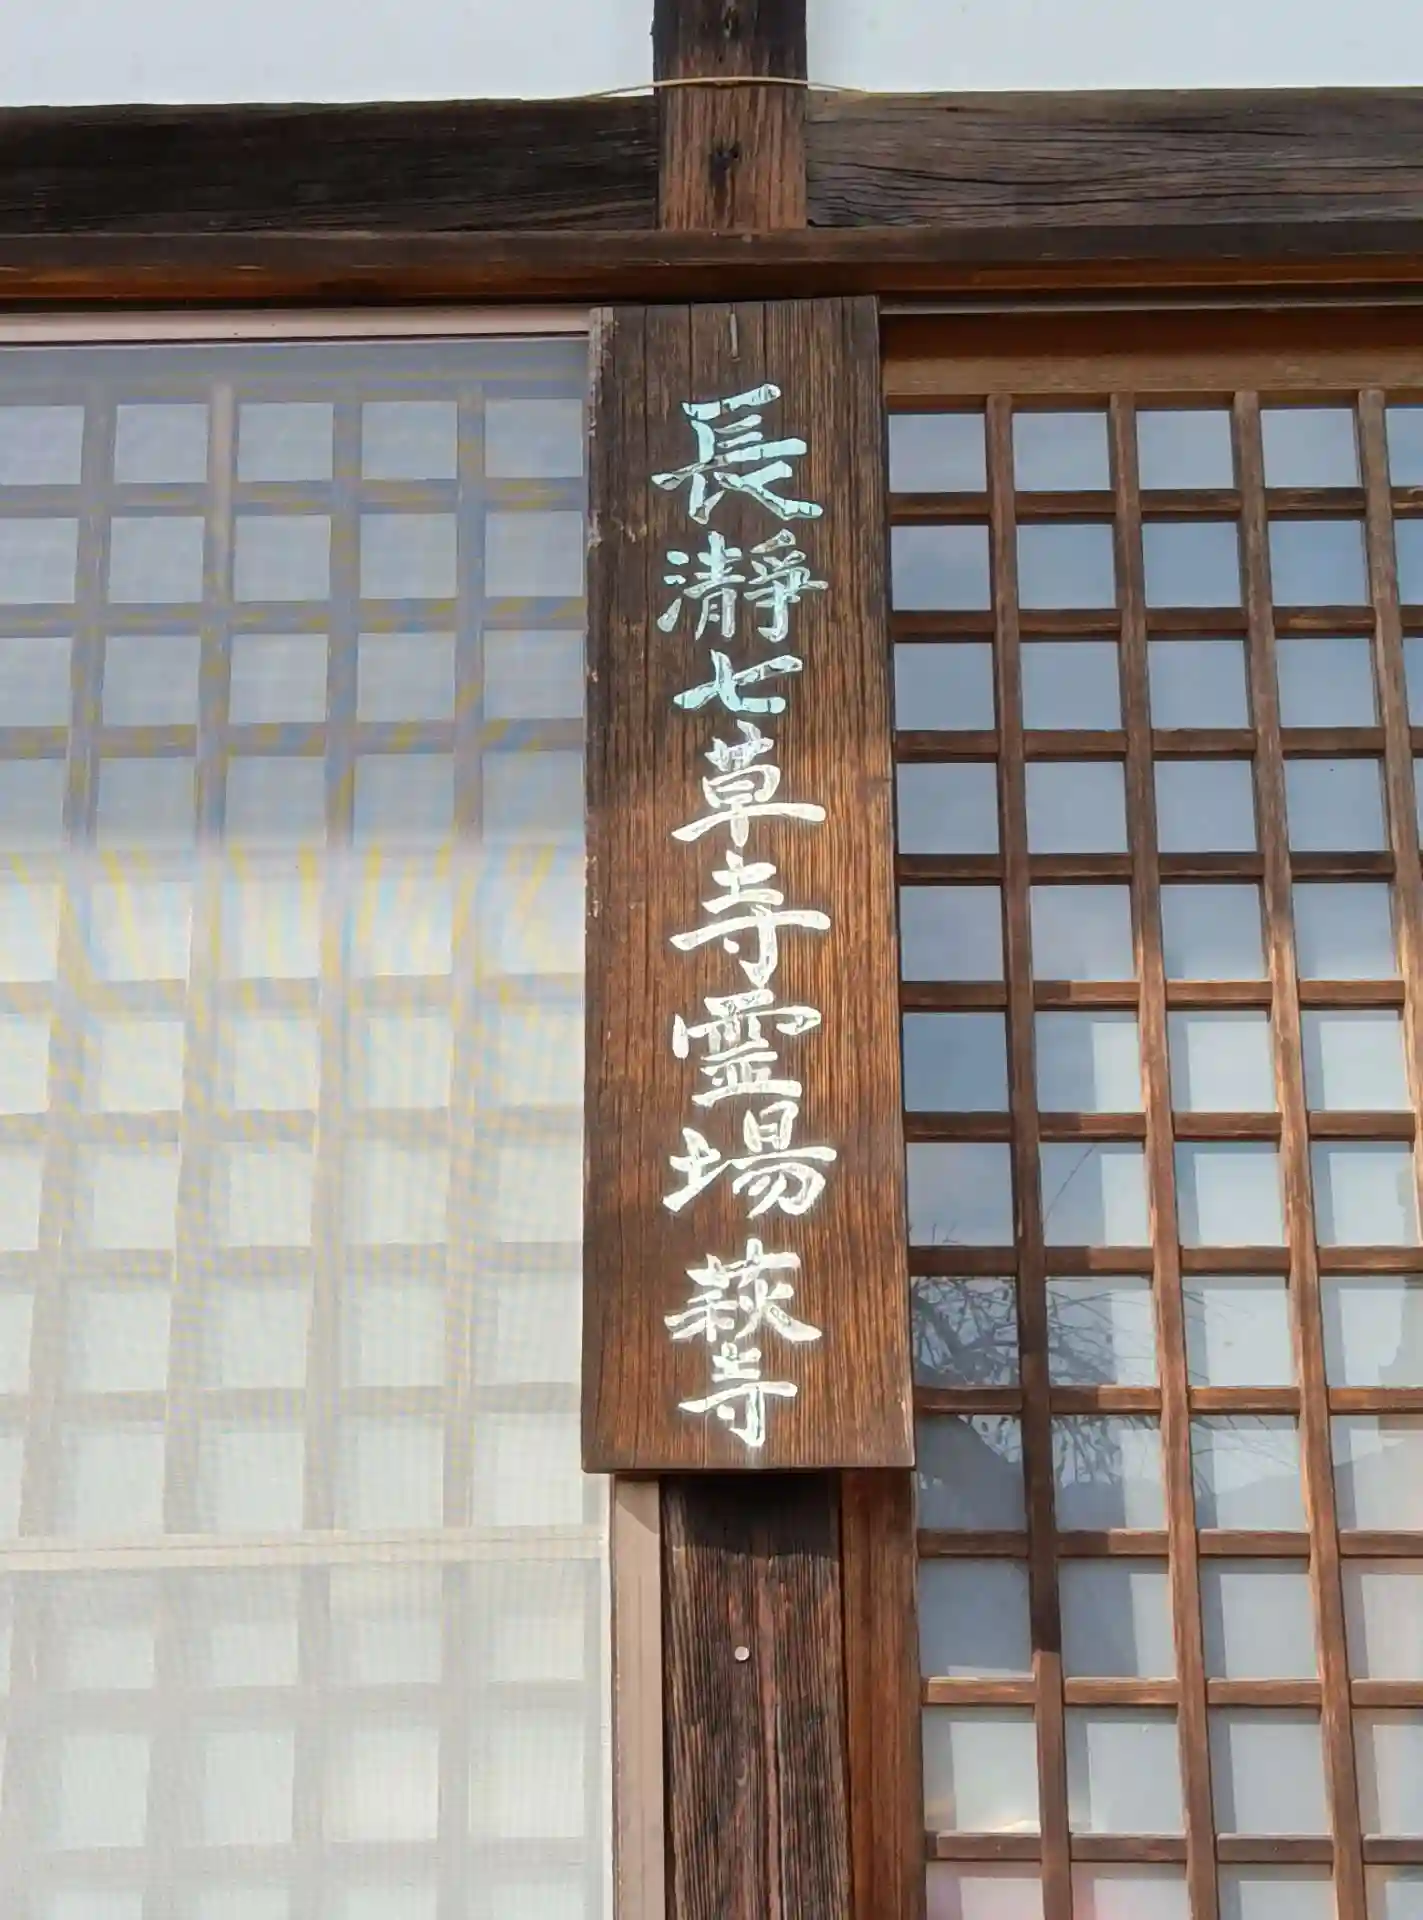 長瀞七草寺霊場 萩寺